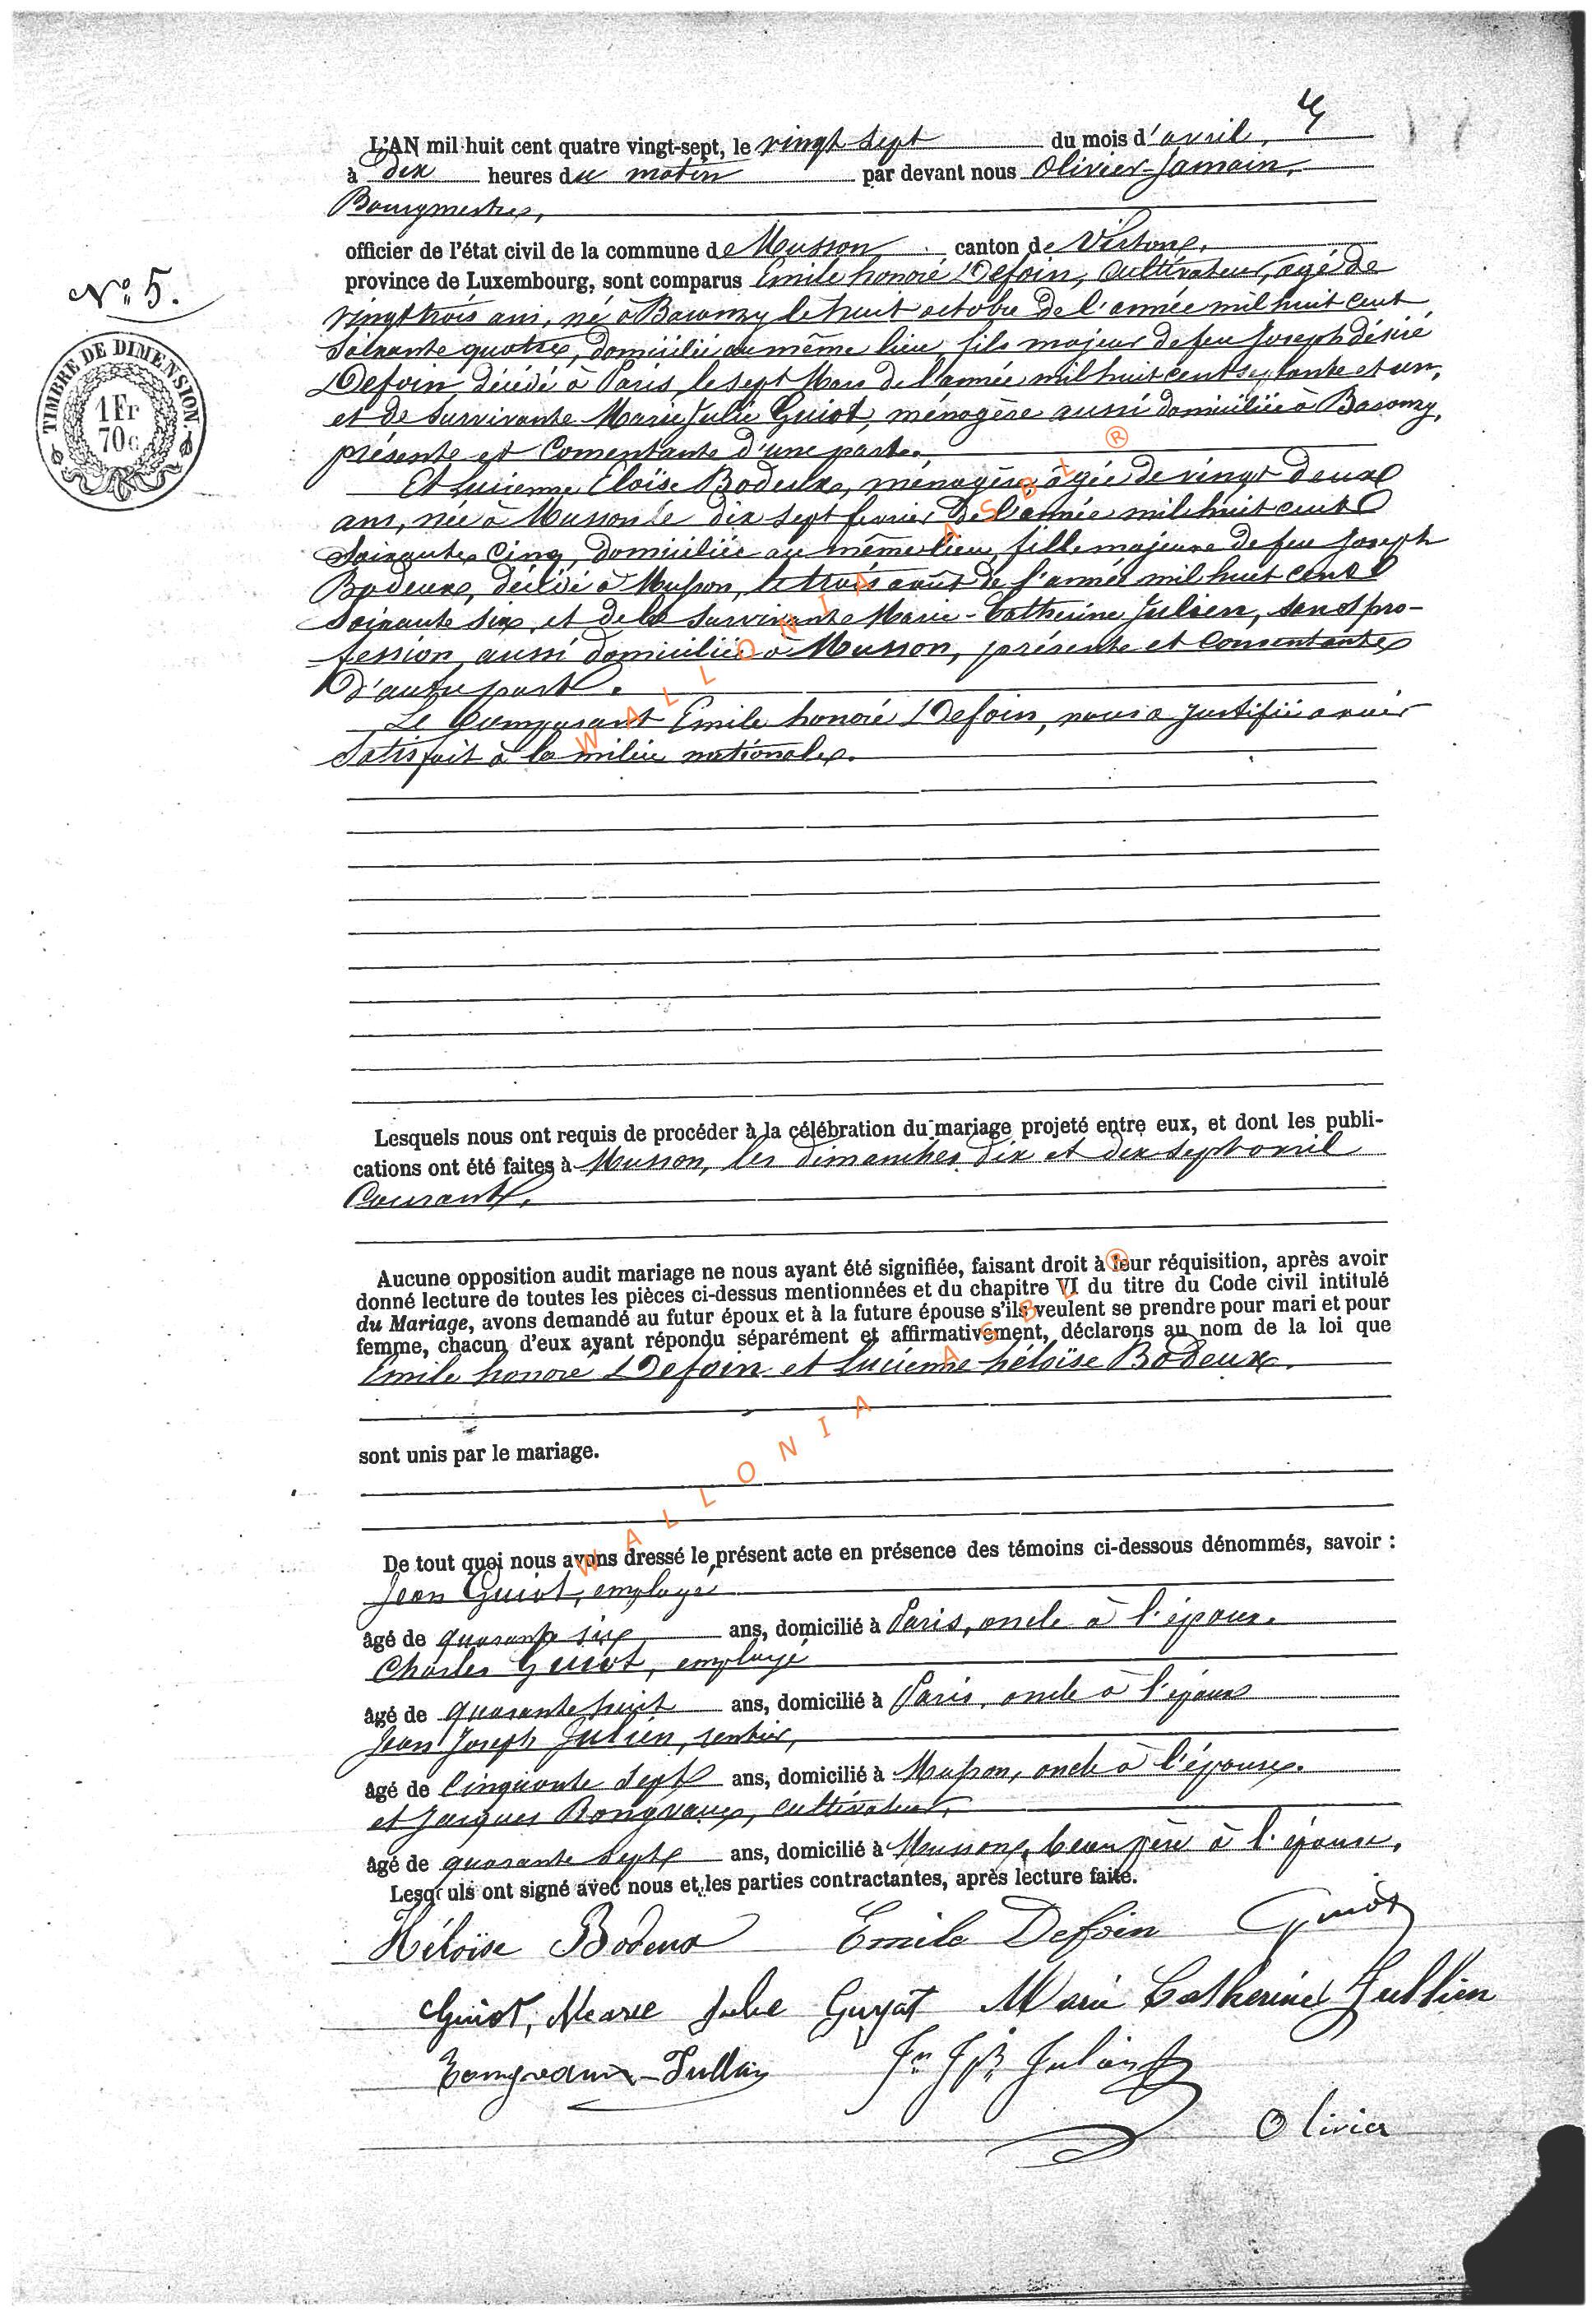 4
L'AN mil huit cent quatre vingt-sept, le vingt sept du mois d'avril,
à dix heures du matin par devant nous Olivier Jamain,
Bourgmestre,
officier de l'état civil de la commune de Musson canton de Virton,
province de Luxembourg, sont comparus Emile honoré Defoin, Cultivateur, agé de
vingt trois ans, né à Baranzy le huit octobre de l'année mil huit cent
Soixante quatre, domicilié au même lieu, fils majeur de feu Joseph désiré
Defoin décédé à Paris, le sept Mars de l'année mil huit cent septante et un,
et de Survivante Marie Julie Guiot, ménagère aussi domiciliée à Baranzy,
présente et Consentante d'une part.
Et Lucienne Eloïse Bodeux, ménagère, âgée de vingt deux
ans, née à Musson le dix sept fevrier de l'année mil huit cent
Soixante Cinq, domiciliée au même lieu, fille majeure de feu Joseph
Bodeux, décédé à Musson, le trois août de l'année mil huit cent
Soixante six, et de la Survivante Marie-Catherine Julien, sans pro-
fession, aussi domiciliée à Musson, présente et Consentante
D'autre part.
Le Comparant Emile honoré Defoin, nous a justifié avoir
Satisfait à la milice nationale.
No. 5.
TIMBRE DE DIMENSION
1 Fr
70 c
Lesquels nous ont requis de procéder à la célébration du mariage projeté entre eux, et dont les publi-
cations ont été faites à Musson, les dimanches dix et dix sept avril
Courant.
Aucune opposition audit mariage ne nous ayant été signifiée, faisant droit à leur réquisition, après avoir
donné lecture de toutes les pièces ci-dessus mentionnées et du chapitre VI du titre du Code civil intitulé
du Mariage, avons demandé au futur époux et à la future épouse s'ils veulent se prendre pour mari et pour
femme, chacun d'eux ayant répondu séparément et affirmativement, déclarons au nom de la loi que
Emile honoré Defoin et Lucienne héloïse Bodeux.
sont unis par le mariage.
De tout quoi nous avons dressé le présent acte en présence des témoins ci-dessous dénommés, savoir :
Jean Guiot, employé
âgé de quarante six ans, domicilié à Paris, oncle à l'époux.
Charles Guiot, employé
âgé de quarante huit ans, domicilié à Paris, oncle à l'époux
Jean Joseph Julien, rentier,
âgé de Cinquante Sept ans, domicilié à Musson, oncle à l'épouse.
et Jacques Rongvaux, cultivateur,
âgé de quarante Sept ans, domicilié à Musson, beau père à l'épouse.
Lesquels ont signé avec nous et les parties contractantes, après lecture faite.
Héloïse Bodeux Emile Defoin Guiot
Guiot, Marie Julie Guyot Marie Catherine Jullien
Rongveaux-Jullien Jn Jph Julien
Olivier
WALLONIA ASBL ®
WALLONIA ASBL ®